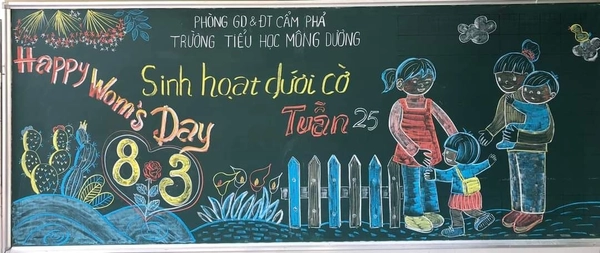 PHÒNG GD&ĐT CẨM PHẢ
TRƯỜNG TIỂU HỌC MÔNG DƯƠNG
Happy Wom's Day
8 3
Sinh hoạt dưới cờ
Tuần 25